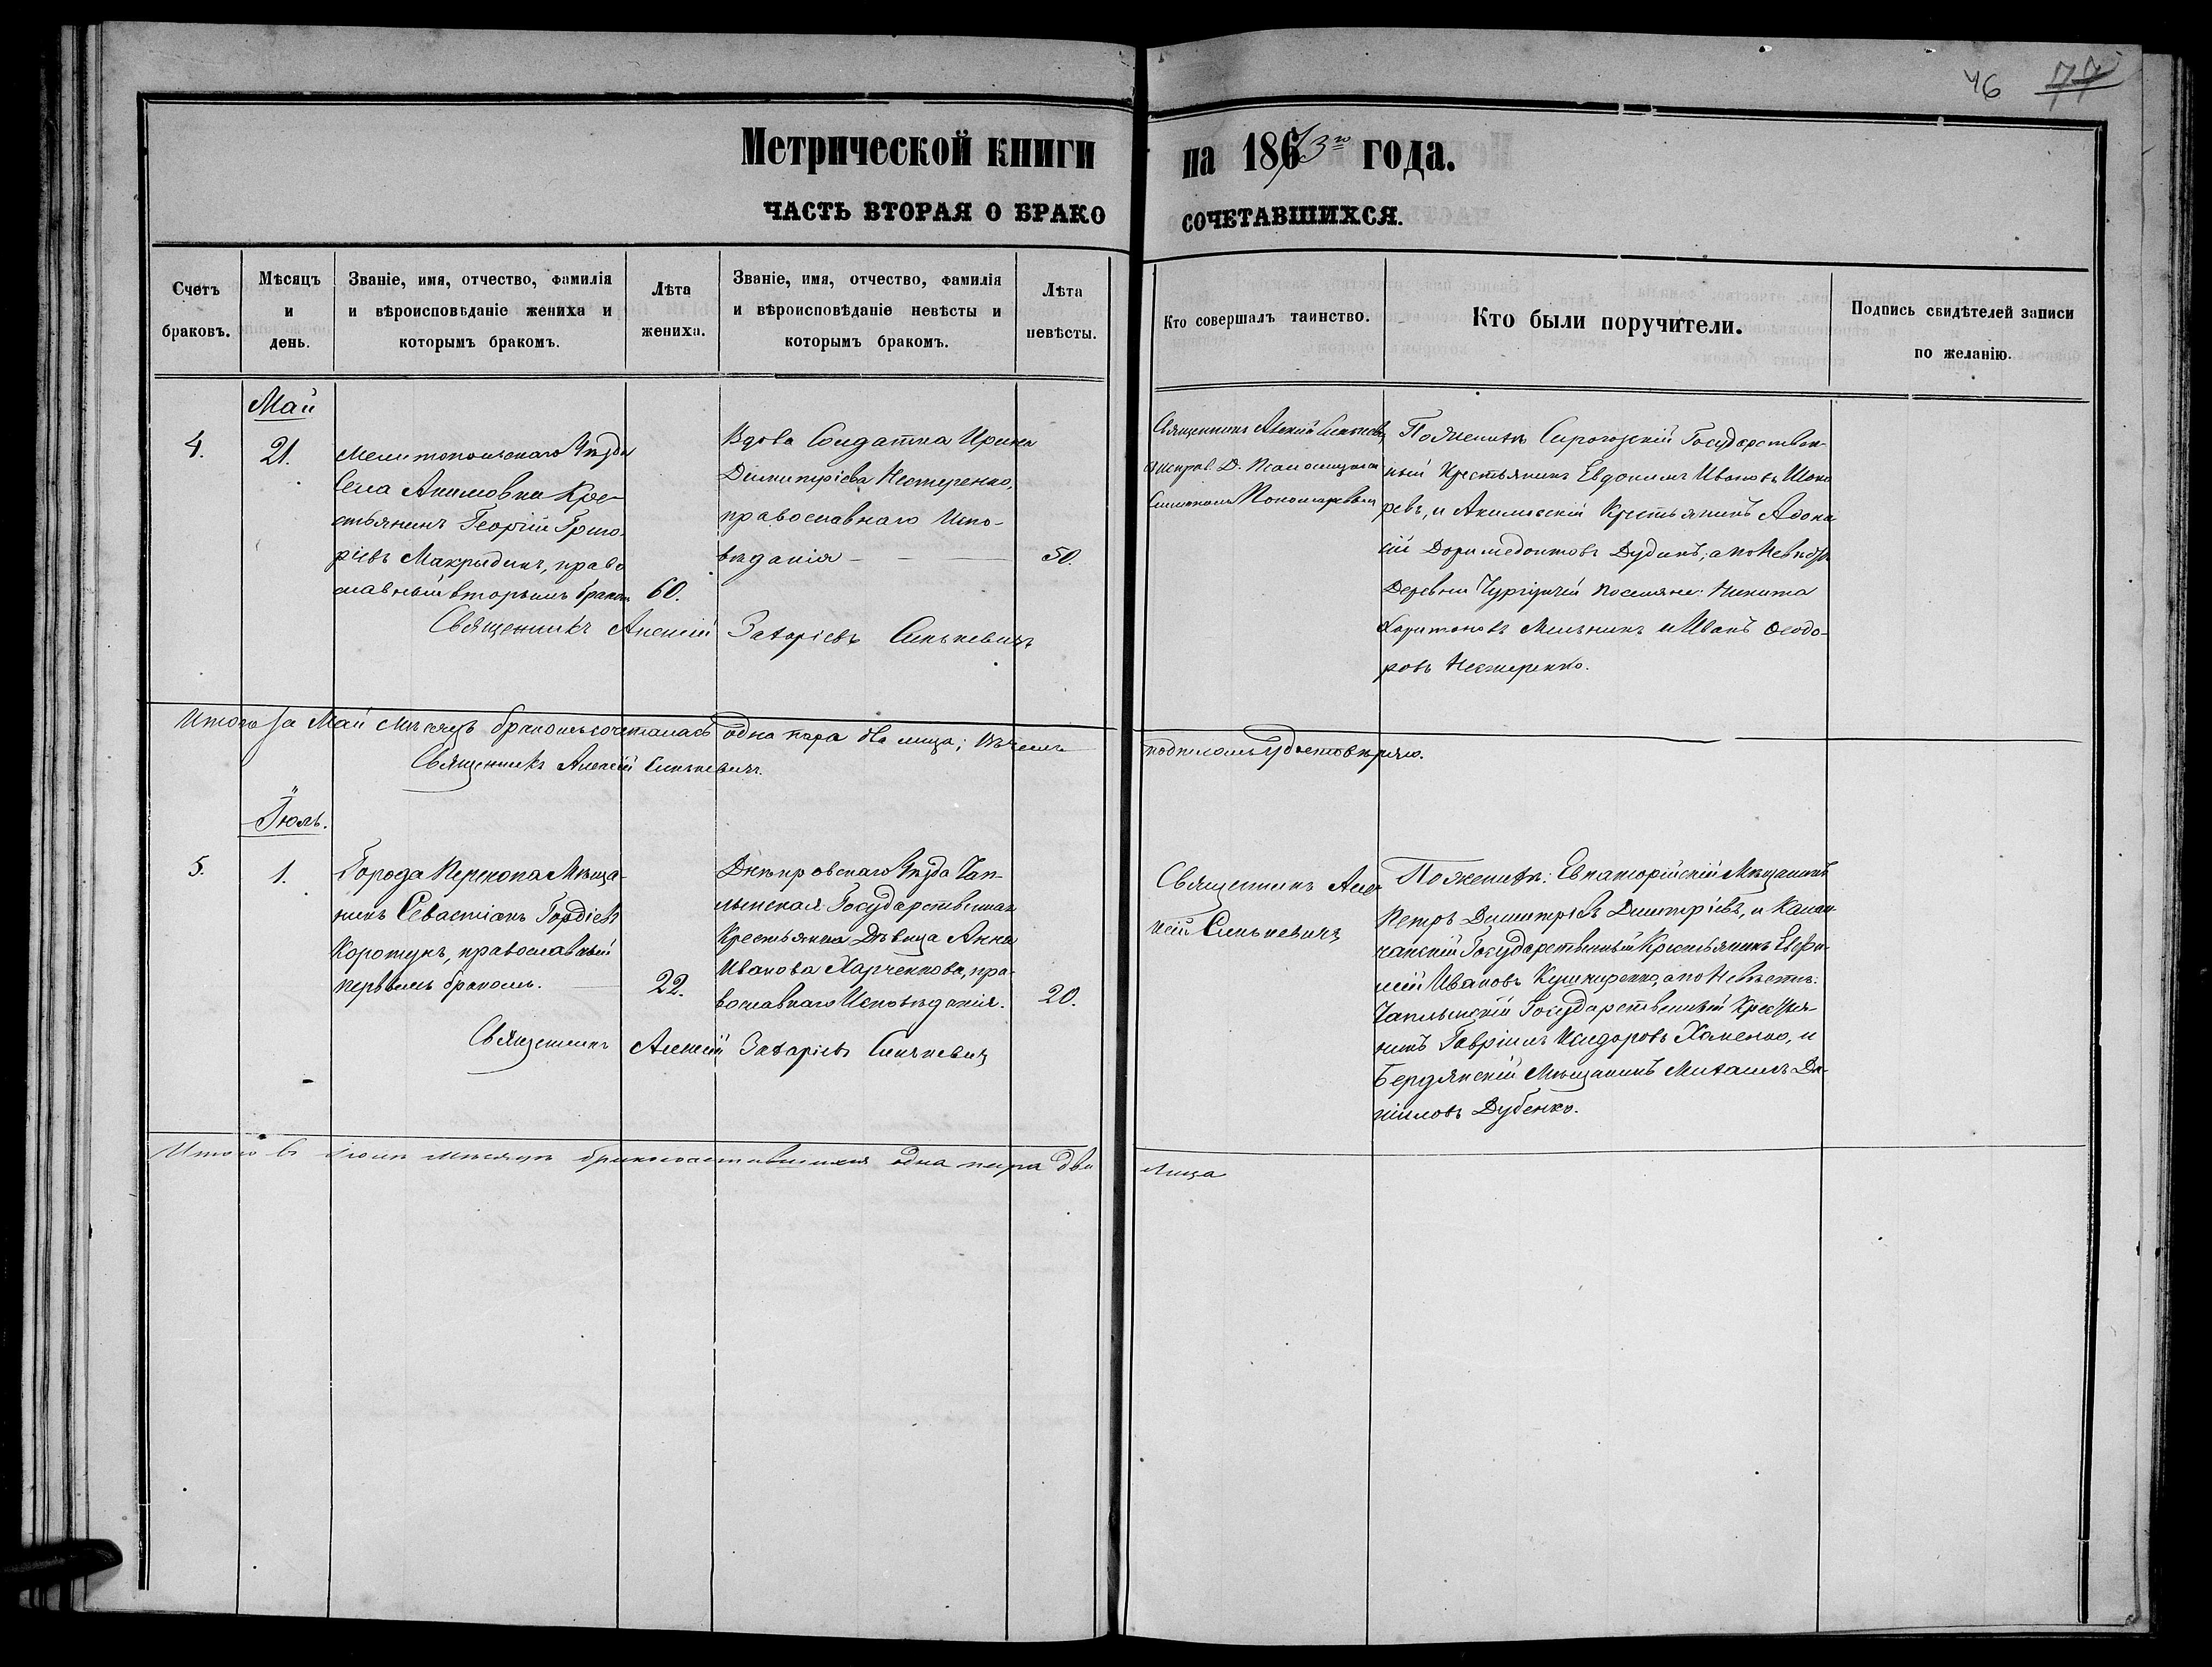 46 77
Метрической книги на 1873го года.
ЧАСТЬ ВТОРАЯ О БРАКОСОЧЕТАВШИХСЯ.
Счетъ браковъ.
Мѣсяцъ и день.
Званіе, имя, отчество, фамилія и вѣроисповѣданіе жениха и которымъ бракомъ.
Лѣта жениха.
Званіе, имя, отчество, фамилія и вѣроисповѣданіе невѣсты и которымъ бракомъ.
Лѣта невѣсты.
Кто совершалъ таинство.
Кто были поручители.
Подпись свидѣтелей записи по желанію.
Май
4.
21.
Мелитопольскаго Уѣзда
Села Акимовки Кре-
стьянинъ Георгій Григо-
ріевъ Макрыдинъ, право
славный вторымъ бракомъ
60.
Вдова Солдатка Ирина
Димитріева Нестеренко,
православнаго Испо-
вѣданія
50.
Священникъ Алексій Захаріевъ Синькевичъ
Священникъ Алексій Синькевичъ
Псаломщикъ
По женихѣ Сирогозскій Государствен-
ный Крестьянинъ Евдокимъ Ивановъ
и Акимовскій Крестьянинъ
Доримедонтовъ Дудинъ; а по Невѣстѣ
Деревни поселяне: Никита
Харитоновъ Мельникъ и Иванъ Ѳеодо-
ровъ Нестеренко.
Итого за Май мѣсяцъ бракомъ сочеталась одна пара два лица; въ чемъ подписомъ удостовѣряю.
Священникъ Алексій Синькевичъ.
Іюль.
5.
1.
Города Перекопа Мѣща-
нинъ Севастіанъ Гордіевъ
Коротунъ, православный
первымъ бракомъ.
22.
Днѣпровскаго Уѣзда Чап-
лынская Государственная
Крестьянка Дѣвица Анна
Иванова Харченкова, пра-
вославнаго Исповѣданія.
20.
Священникъ Алексій Захаріевъ Синькевичъ
Священникъ Алек
сій Синькевичъ
По женихѣ: Евпаторійскій Мѣщанинъ
Петръ Димитріевъ Димитріевъ, и Калан
чакскій Государственный Крестьянинъ Евфи-
мій Ивановъ Кушниренко, а по Невѣстѣ:
Чаплынскій Государственный Крестья-
нинъ Гавріилъ Исидоровъ Хоменко, и
Бердянскій Мѣщанинъ Михаилъ Да-
ніиловъ Дубенко.
Итого въ Іюлѣ мѣсяцѣ бракосочетавшихся одна пара два лица